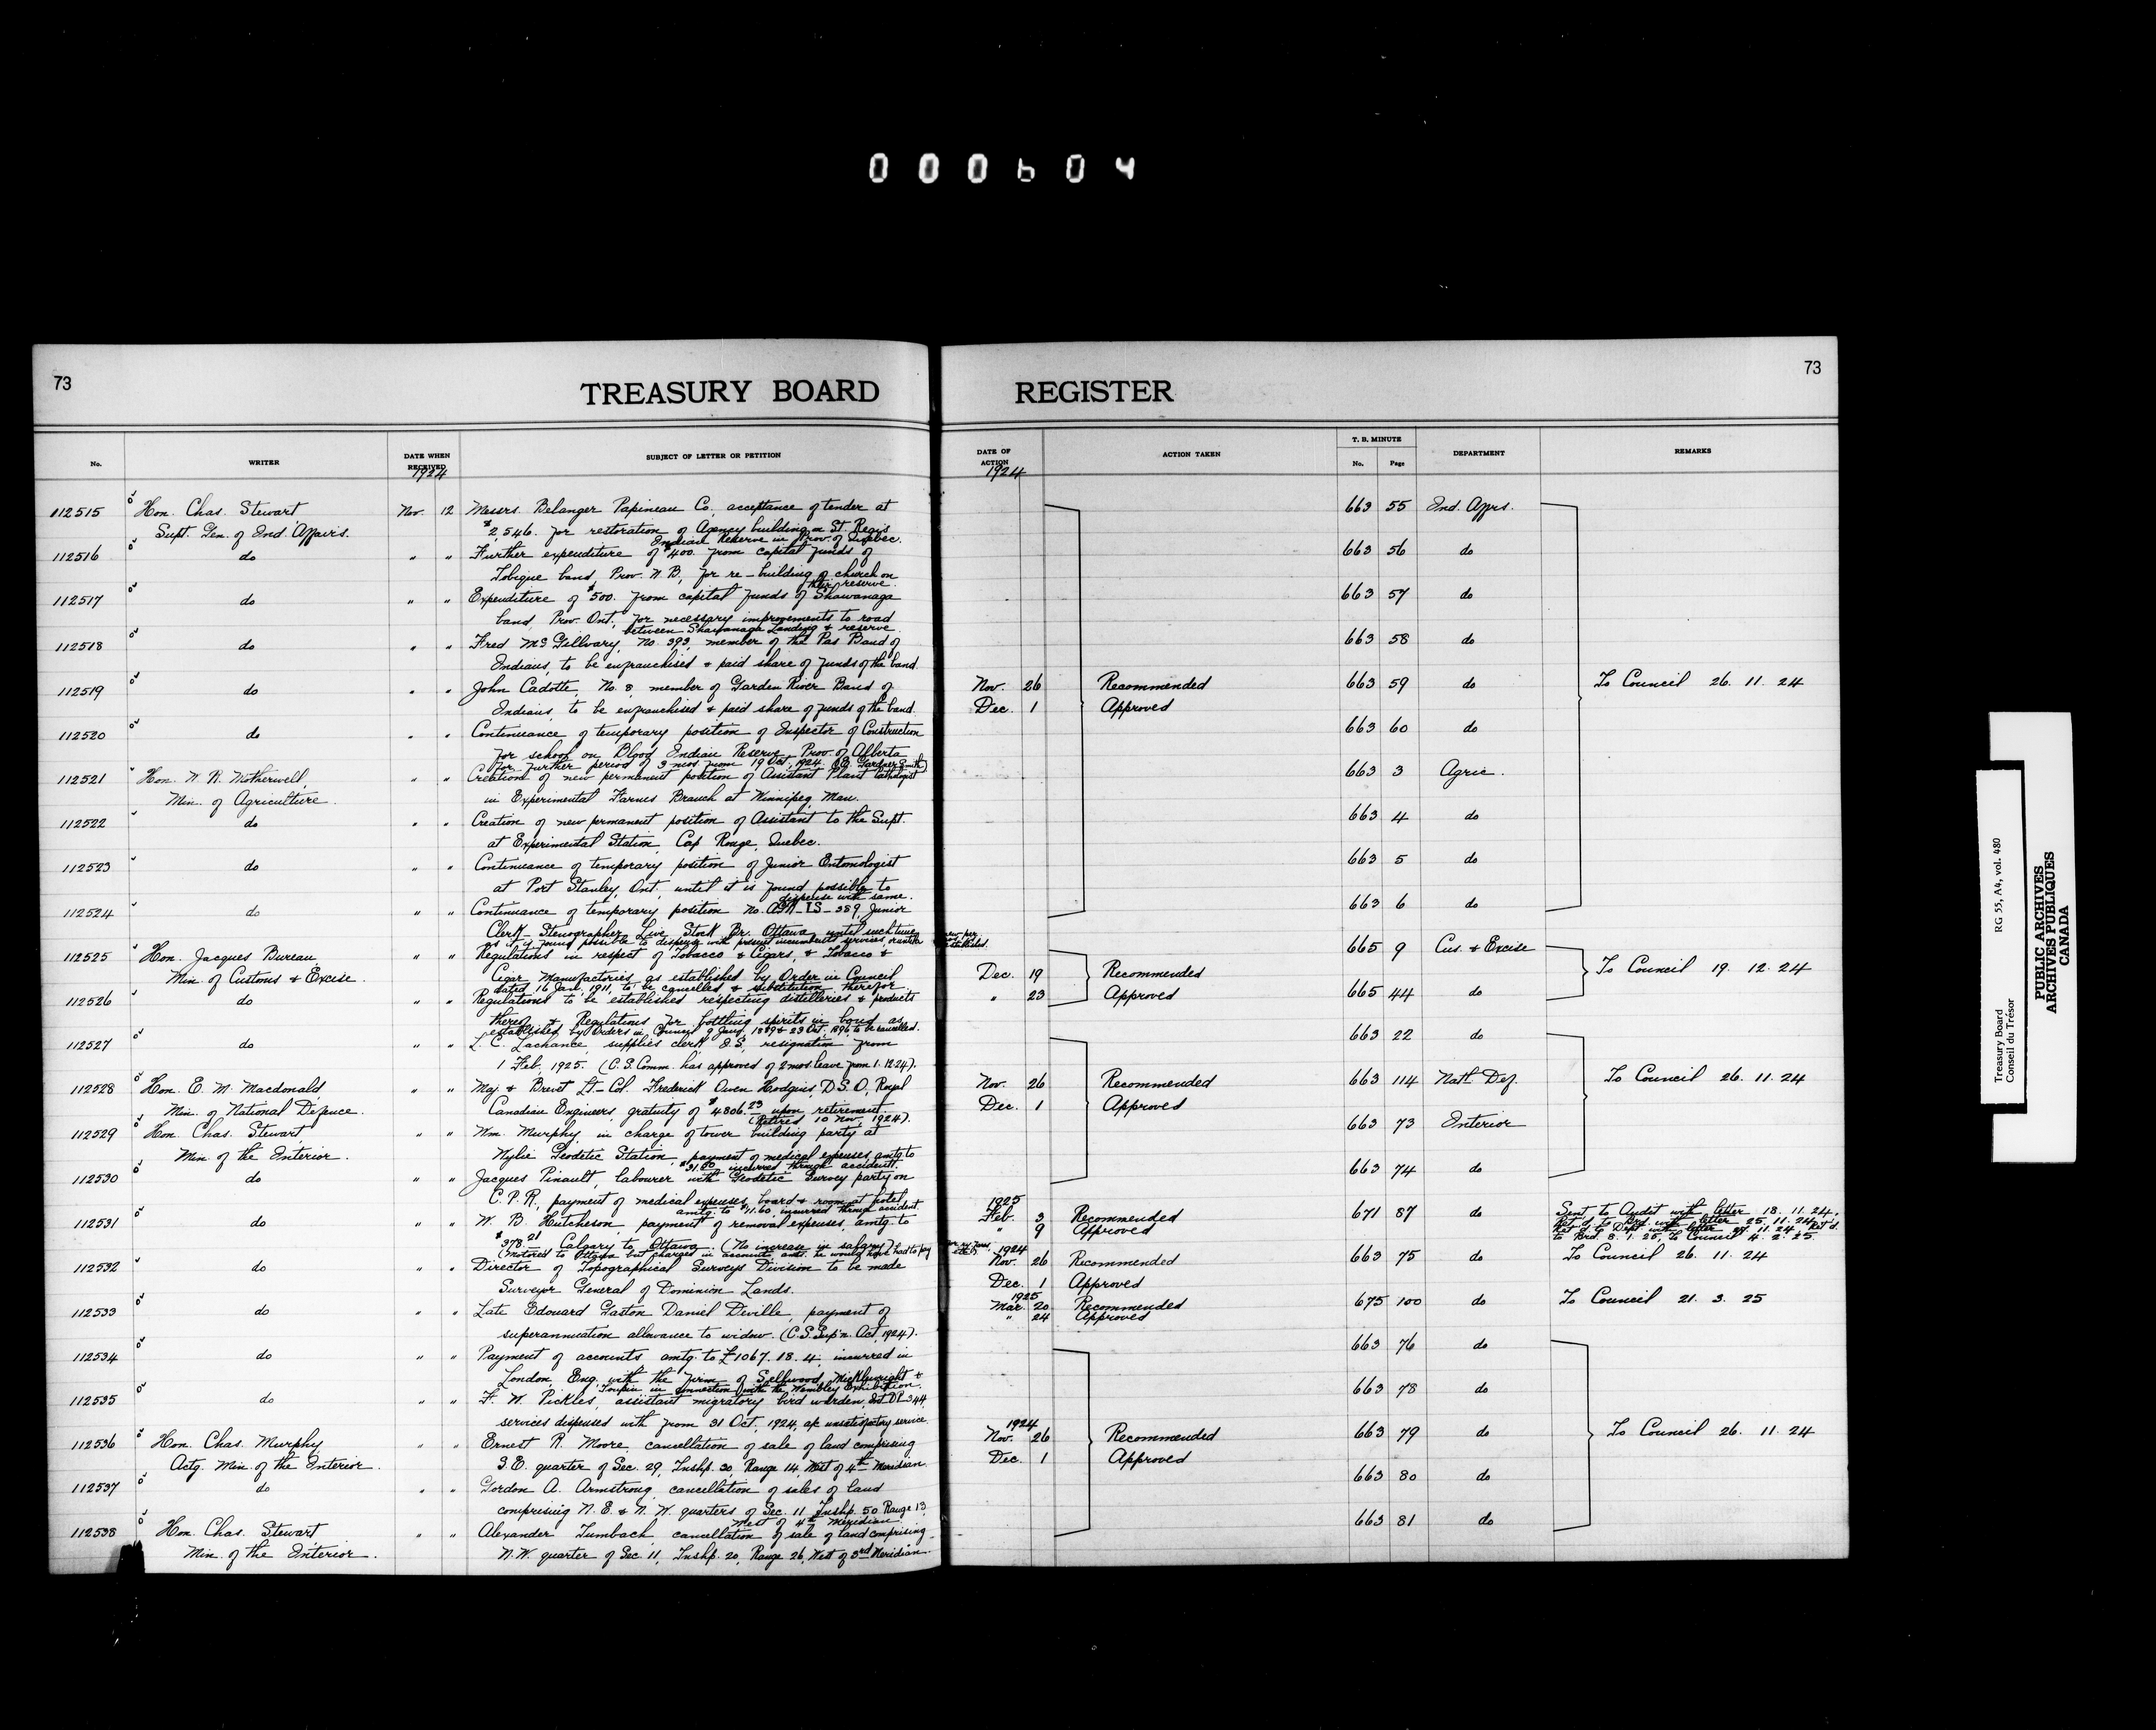 000604
73
TREASURY BOARD
No.
WRITER
DATE WHEN RECEIVED
SUBJECT OF LETTER OR PETITION
1924
112515 Hon. Chas. Stewart Nov. 12 Messrs. Belanger Papineau Co., acceptance of tender at
Supt. Gen. of Ind. Affairs. $2,546. for restoration of Agency building on St. Regis
Indian Reserve in Prov. of Quebec.
112516 do " " Further expenditure of $400. from capital funds of
Tobique band, Prov. N.B., for re-building of church on
their reserve.
112517 do " " Expenditure of $500. from capital funds of Shawanaga
band Prov. Ont., for necessary improvements to road
between Shawanaga Landing & reserve.
112518 do " " Fred McGillvary, No. 393, member of the Pas Band of
Indians, to be enfranchised & paid share of funds of the band.
112519 do " " John Cadotte, No. 8, member of Garden River Band of
Indians, to be enfranchised & paid share of funds of the band.
112520 do " " Continuance of temporary position of Inspector of Construction
for school on Blood Indian Reserve, Prov. of Alberta
for further period of 3 mos from 19 Oct., 1924. Gardner Smith)
112521 Hon. W. R. Motherwell, " " Creation of new permanent position of Assistant Plant Pathologist
Min. of Agriculture. in Experimental Farms Branch at Winnipeg, Man.
112522 do " " Creation of new permanent position of Assistant to the Supt.
at Experimental Station, Cap Rouge, Quebec.
112523 do " " Continuance of temporary position of Junior Entomologist
at Port Stanley, Ont. until it is found possible to
dispense with same.
112524 do " " Continuance of temporary position No. AGR-LS-389, Junior
Clerk-Stenographer, Live Stock Br. Ottawa, until such time
as it is found possible to dispense with present incumbent's services,
112525 Hon. Jacques Bureau, " " Regulations in respect of Tobacco & Cigars, & Tobacco &
Min. of Customs & Excise. Cigar Manufactories, as established by Order in Council
dated 16 Jan. 1911, to be cancelled & substitution therefor.
112526 do " " Regulations to be established respecting distilleries & products
thereof & Regulations for bottling spirits in bond as
established by Orders in Council 9 Jany. 1889 & 23 Oct. 1896 to be cancelled.
112527 do " " L. C. Lachance, supplies clerk O.S., resignation from
1 Feb., 1925. (C.S. Comm. has approved of 2 mos. leave from 1.12.24).
112528 Hon. E. M. Macdonald, " " Maj. & Brevet Lt-Col. Frederick Owen Hodgins, D.S.O., Royal
Min. of National Defence. Canadian Engineers, gratuity of $4806.23 upon retirement.
(Retired 10 Nov. 1924).
112529 Hon. Chas. Stewart, " " Wm. Murphy, in charge of tower building party at
Min. of the Interior. Wylie Geodetic Station, payment of medical expenses, amtg to
$31.00 incurred through accident.
112530 do " " Jacques Pinault, labourer with Geodetic Survey party on
C.P.R., payment of medical expenses, board & room at hotel,
amtg. to $11.60, incurred through accident.
112531 do " " W. B. Hutcheson, payment of removal expenses, amtg. to
$378.21 Calgary to Ottawa. (No increase in salary)
(motored to Ottawa but charged in accounts amt. he would have had to pay
112532 do " " Director of Topographical Surveys Division to be made
Surveyor General of Dominion Lands.
112533 do " " Late Edouard Gaston Daniel Deville, payment of
superannuation allowance to widow. (C.S. Sup'n. Act, 1924).
112534 do " " Payment of accounts amtg. to £1067.18.4, incurred in
London, Eng. with the firm of Sellwood, Micklewright &
in connection with the Wembley Exhibition.
112535 do " " F. W. Pickles, assistant migratory bird warden, Int. DL-344,
services dispensed with from 31 Oct., 1924, a/c unsatisfactory service.
112536 Hon. Chas. Murphy, " " Ernest R. Moore, cancellation of sale of land comprising
Actg. Min. of the Interior. S.E. quarter of Sec. 29, Tnshp. 30, Range 14, West of 4th Meridian.
112537 do " " Gordon A. Armstrong, cancellation of sales of land
comprising N.E. & N.W. quarters of Sec. 11, Tnshp. 50 Range 13
West of 4th Meridian.
112538 Hon. Chas. Stewart " " Alexander Tumbach, cancellation of sale of land comprising
Min. of the Interior. N.W. quarter of Sec. 11, Tnshp. 20, Range 26, West of 3rd Meridian.
REGISTER
73
DATE OF ACTION
ACTION TAKEN
T. B. MINUTE
No.
Page
DEPARTMENT
REMARKS
1924
663 55 Ind. Affrs.
663 56 do
663 57 do
663 58 do
Nov. 26 Recommended 663 59 do To Council 26. 11. 24
Dec. 1 Approved
663 60 do
663 3 Agric.
663 4 do
663 5 do
663 6 do
665 9 Cus. & Excise
Dec. 19 Recommended To Council 19. 12. 24
" 23 Approved 665 44 do
663 22 do
Nov. 26 Recommended 663 114 Natl. Def. To Council 26. 11. 24
Dec. 1 Approved
663 73 Interior
663 74 do
1925
Feb. 3 Recommended 671 87 do Sent to Audet with letter 18. 11. 24.
" 9 Approved Ret'd. to Brd. with letter 25. 11. 24.
Ret'd. to Dept. with letter 27. 11. 24. Ret'd.
to Brd. 8. 1. 25. To Council 4. 2. 25.
1924
Nov. 26 Recommended 663 75 do To Council 26. 11. 24
Dec. 1 Approved
1925
Mar. 20 Recommended 675 100 do To Council 21. 3. 25
" 24 Approved
663 76 do
663 78 do
1924
Nov. 26 Recommended 663 79 do To Council 26. 11. 24
Dec. 1 Approved
663 80 do
663 81 do
Treasury Board RG 55, A4, vol. 480
Conseil du Trésor
PUBLIC ARCHIVES
ARCHIVES PUBLIQUES
CANADA